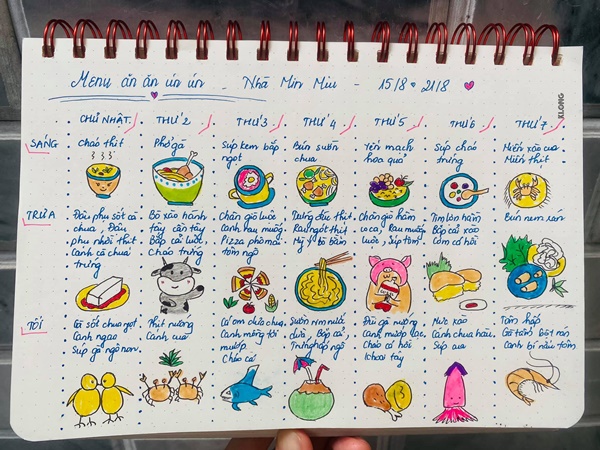 Menu ăn ăn ún ún - Nhà Min Miu - 15/8 → 21/8
KLONG
CHỦ NHẬT THỨ 2 THỨ 3 THỨ 4 THỨ 5 THỨ 6 THỨ 7
SÁNG
Cháo thịt
Phở gà
Súp kem bắp
ngọt
Bún sườn
chua
Yến mạch
hoa quả
Súp cháo
trứng
Miến xào cua
Miến thịt
TRƯA
Đậu phụ sốt cà
chua, Đậu
phụ nhồi thịt
Canh cà chua
trứng
Bò xào hành
tây cần tây
Bắp cải luộc
Cháo trứng
Chân giò luộc
Canh rau muống
Pizza phô mai
tôm ngô
Trứng đúc thịt
Rau ngót thịt
Mỳ Ý bò băm
Chân giò hầm
Rau muống
luộc, Súp tôm
Bắp cải xào
Cơm cá hồi
Bún nem rán
TỐI
Gà sốt chua ngọt
Canh ngao
Súp gà ngô non
Thịt nướng
Canh cua
Cá om dưa chua
Canh mồng tơi
mướp
Cháo cá
Sườn rim nước
dừa Bắp cải
Đùi gà nướng
Canh mướp
Cháo cá hồi
khoai tây
Mực xào
Canh chua
Súp cua
Tôm hấp
Canh bí nấu tôm